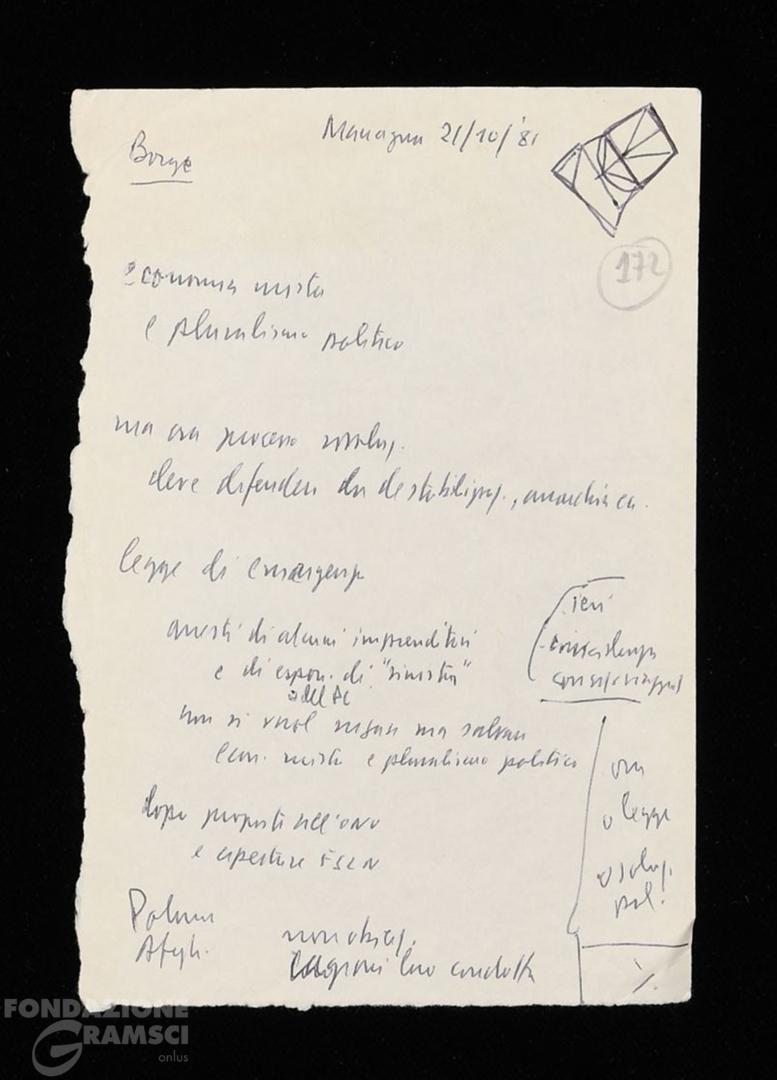 Borge
Managua 21/10/'81
172
economia mista
e pluralismo politico
ma ora processo rivoluz.
deve difendersi da destabilizzaz., anarchia ecc.
legge di emergenza
arresti di alcuni imprenditori
e di espon. di "sinistra"
o del PC
non si vuol negare ma salvare
econ. mista e pluralismo politico
ieri
coincidenza
ora
o legge
o soluz.
pol.!
dopo proposte all'ONU
e apertura FSLN
Polonia
Afgh.
non obiez.
loro condotta
./.
FONDAZIONE
GRAMSCI
onlus